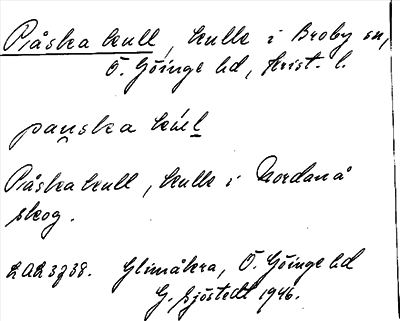 Påska kull, kulle i Broby sn,
Ö. Göinge hd, Krist. l.
pau̯ska kúl
Påska kull, kulle i Nordanå
skog.
Glimåkra, Ö. Göinge hd
G. Sjöstedt 1946.